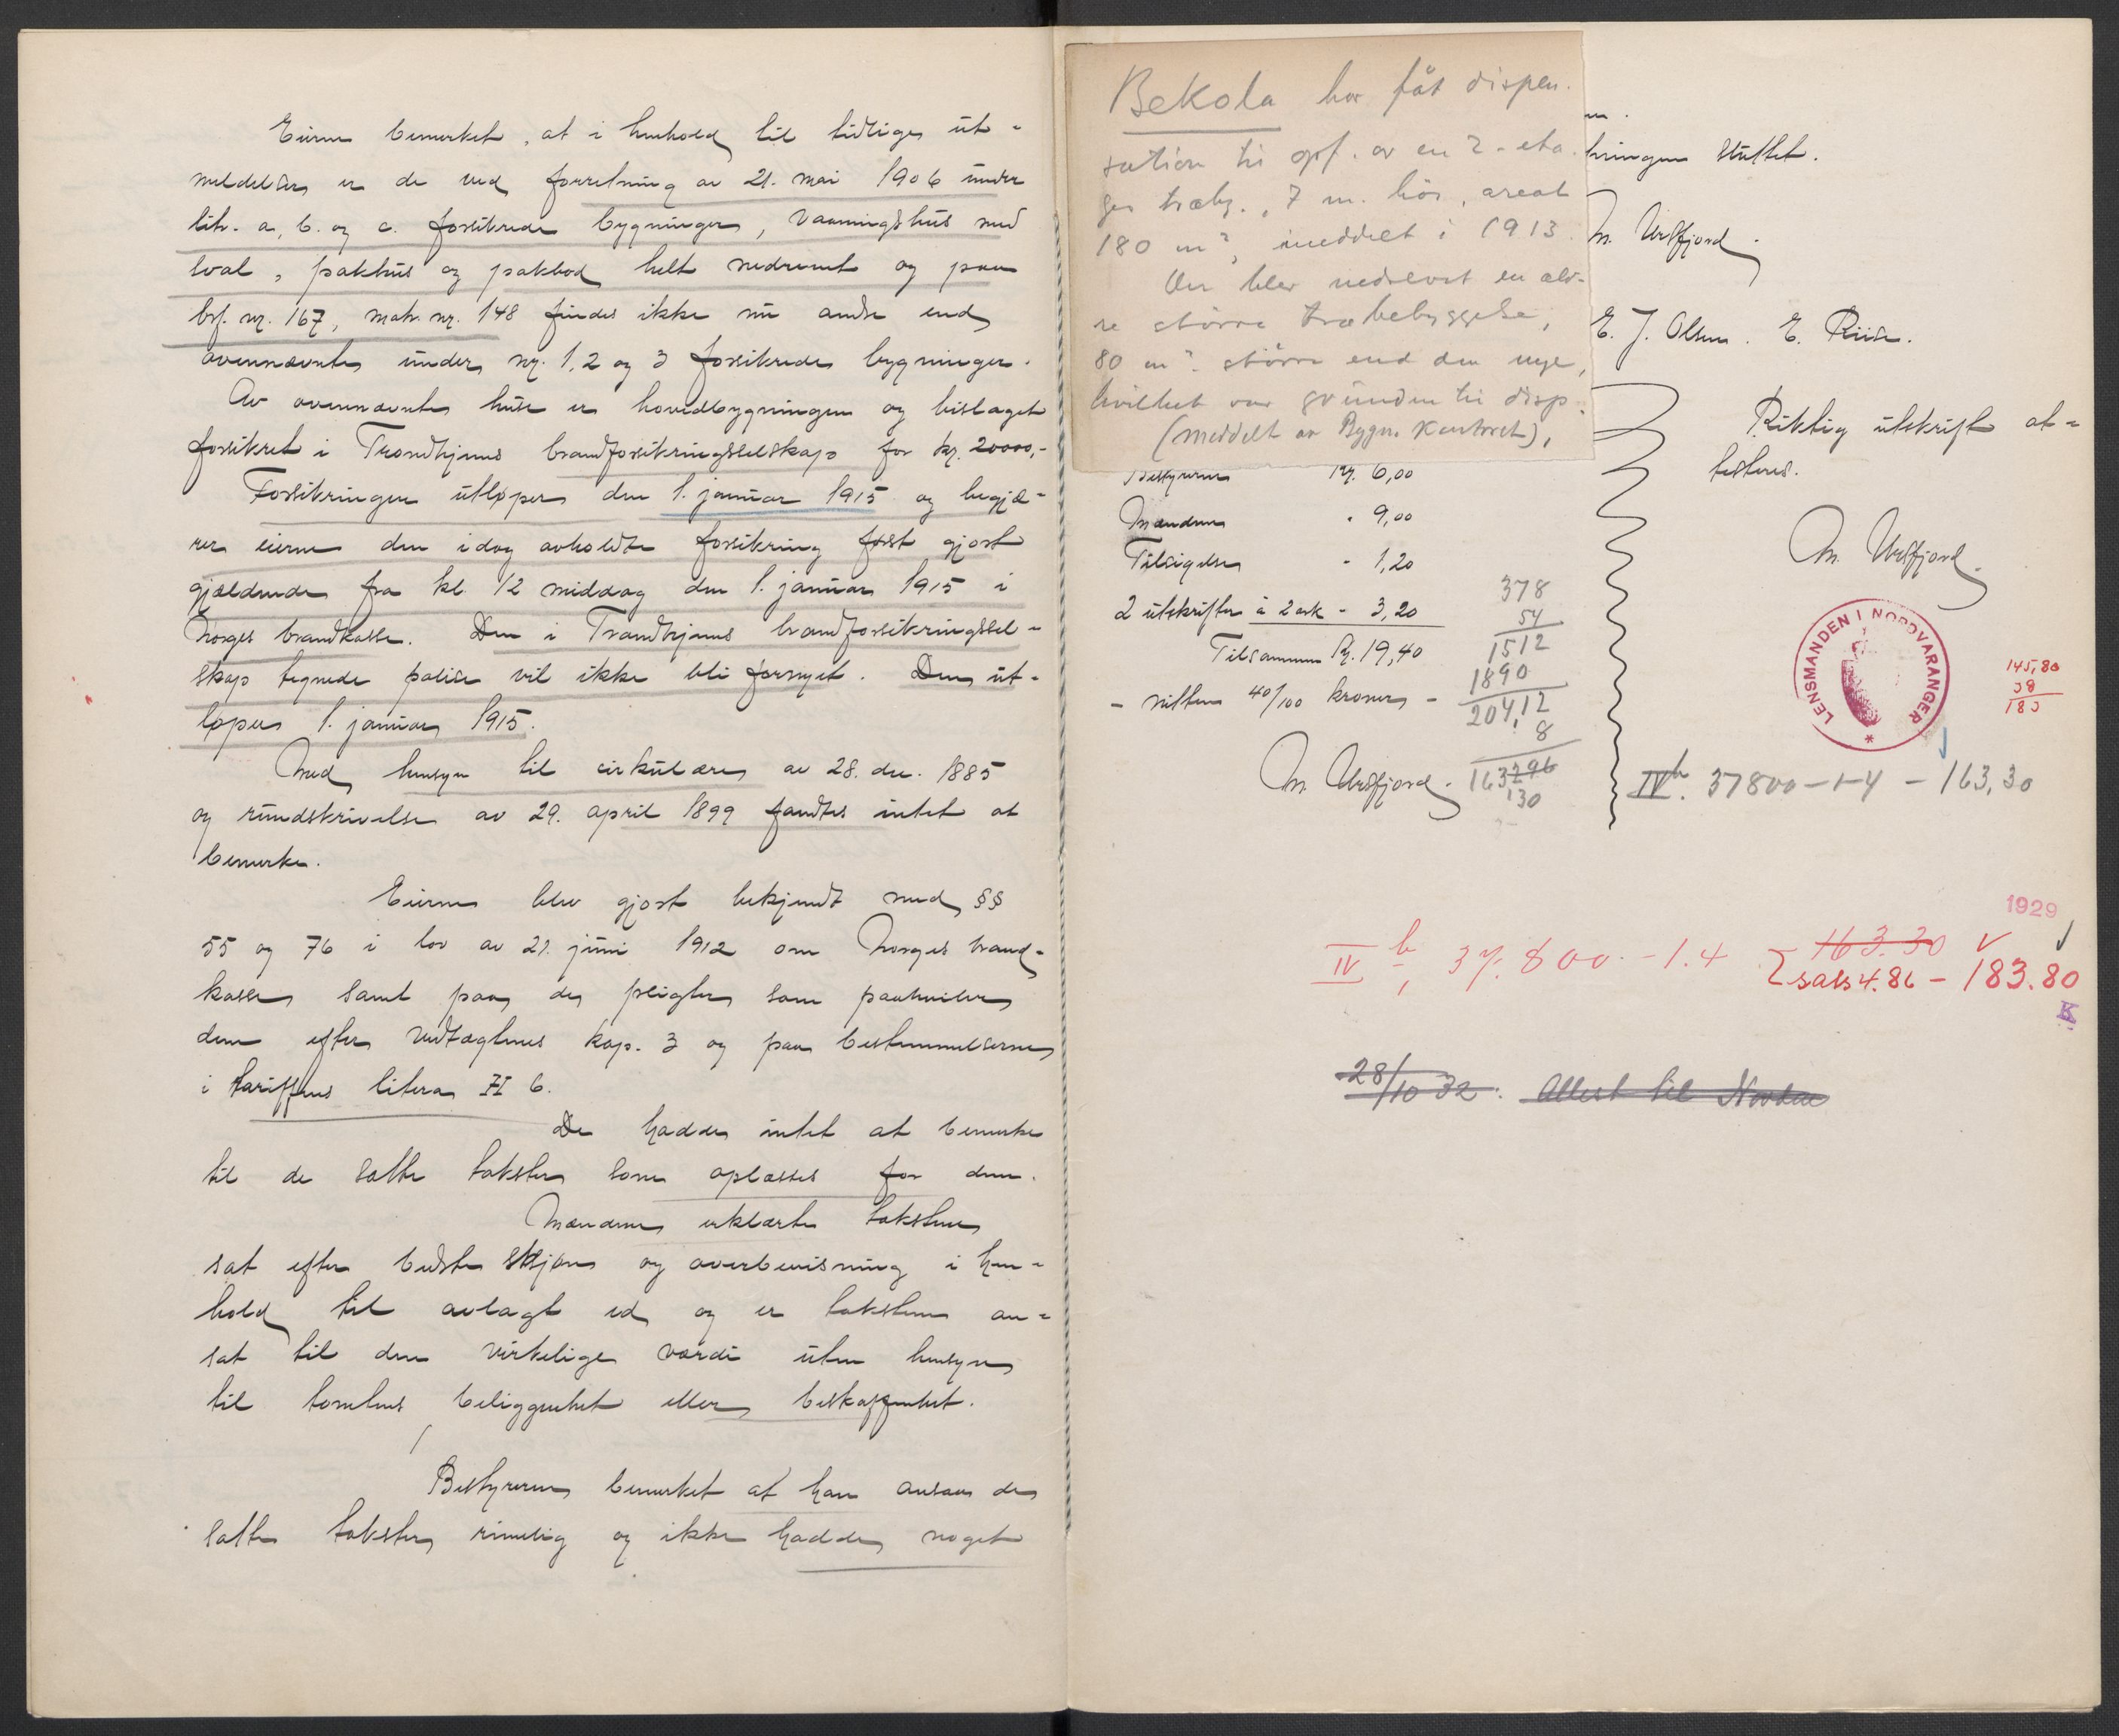 Eierne bemerket, at i henhold til tidligere ut-
meldelser er de ved forretning av 21. mai 1906 under
litr. a, b. og c. forsikrede bygninger, vaaningshus med
sval, pakhus og pakbod helt nedrevet og paa
brf. nr. 167, matr. nr. 148 findes ikke nu andre end
ovennævnte under nr. 1, 2 og 3 forsikrede bygninger.
Av ovennævnte huse er hovedbygningen og bislaget
forsikret i Trondhjems brandforsikringsselskap for kr. 20000,-
Forsikringen utløper den 1. januar 1915 og begjæ-
rer eierne den idag avholdte forsikring først gjort
gjældende fra kl. 12 middag den 1. januar 1915 i
Norges brandkasse. Den i Trondhjems brandforsikringssel-
skap tegnede police vil ikke bli fornyet. Den ut-
løper 1. januar 1915.
Med hensyn til cirkulære av 28. de. 1885
og rundskrivelse av 29. april 1899 fandtes intet at
bemerke.
Eierne blev gjort bekjendt med §§
55 og 76 i lov av 21. juni 1912 om Norges brand-
kasse samt paa de pligter som paahviler
dem efter vedtægternes kap. 3 og paa bestemmelserne
i tariffens litera H 6.
De hadde intet at bemerke
til de satte takster som oplæstes for dem.
Mændene erklærte taksterne
sat efter bedste skjøn og overbevisning i hen-
hold til avlagt ed og er taksterne an-
sat til den virkelige værdi uten hensyn
til tomtens beliggenhet eller beskaffenhet.
Bestyreren bemerket at han ansaa de
satte takster rimelig og ikke hadde noget
Bekola har fåt dispen-
sation til opf. av en 2-eta-
ges træby., 7 m. høi, areal
180 m², meddelt i 1913.
Der blev nedrevet en æld-
re større træbebyggelse,
80 m² større end den nye,
hvilket var grunden til disp.
(meddelt av Bygn. Kontoret).
kringen sluttet.
M. Ursfjord.
E. J. Olsen. E. Riise.
Riktig utskrift at-
testeres.
M. Ursfjord.
Bestyreren Kr. 6,00
Mændene " 9,00
Tilsigelse - 1,20
2 utskrifter à 2 ark - 3,20
Tilsammen Kr. 19,40
- nitten 40/100 kroner -
M. Ursfjord.
378
54
1512
1890
204,12
8
163296
130
LENSMANDEN I NORDVARANGER
145,80
38
183
IVb. 37800-1-4 - 163,30
1929
IVb, 37.800.-1.4 163.30
sats 4.86 - 183.80
K
28/10 32: Attest til Norden